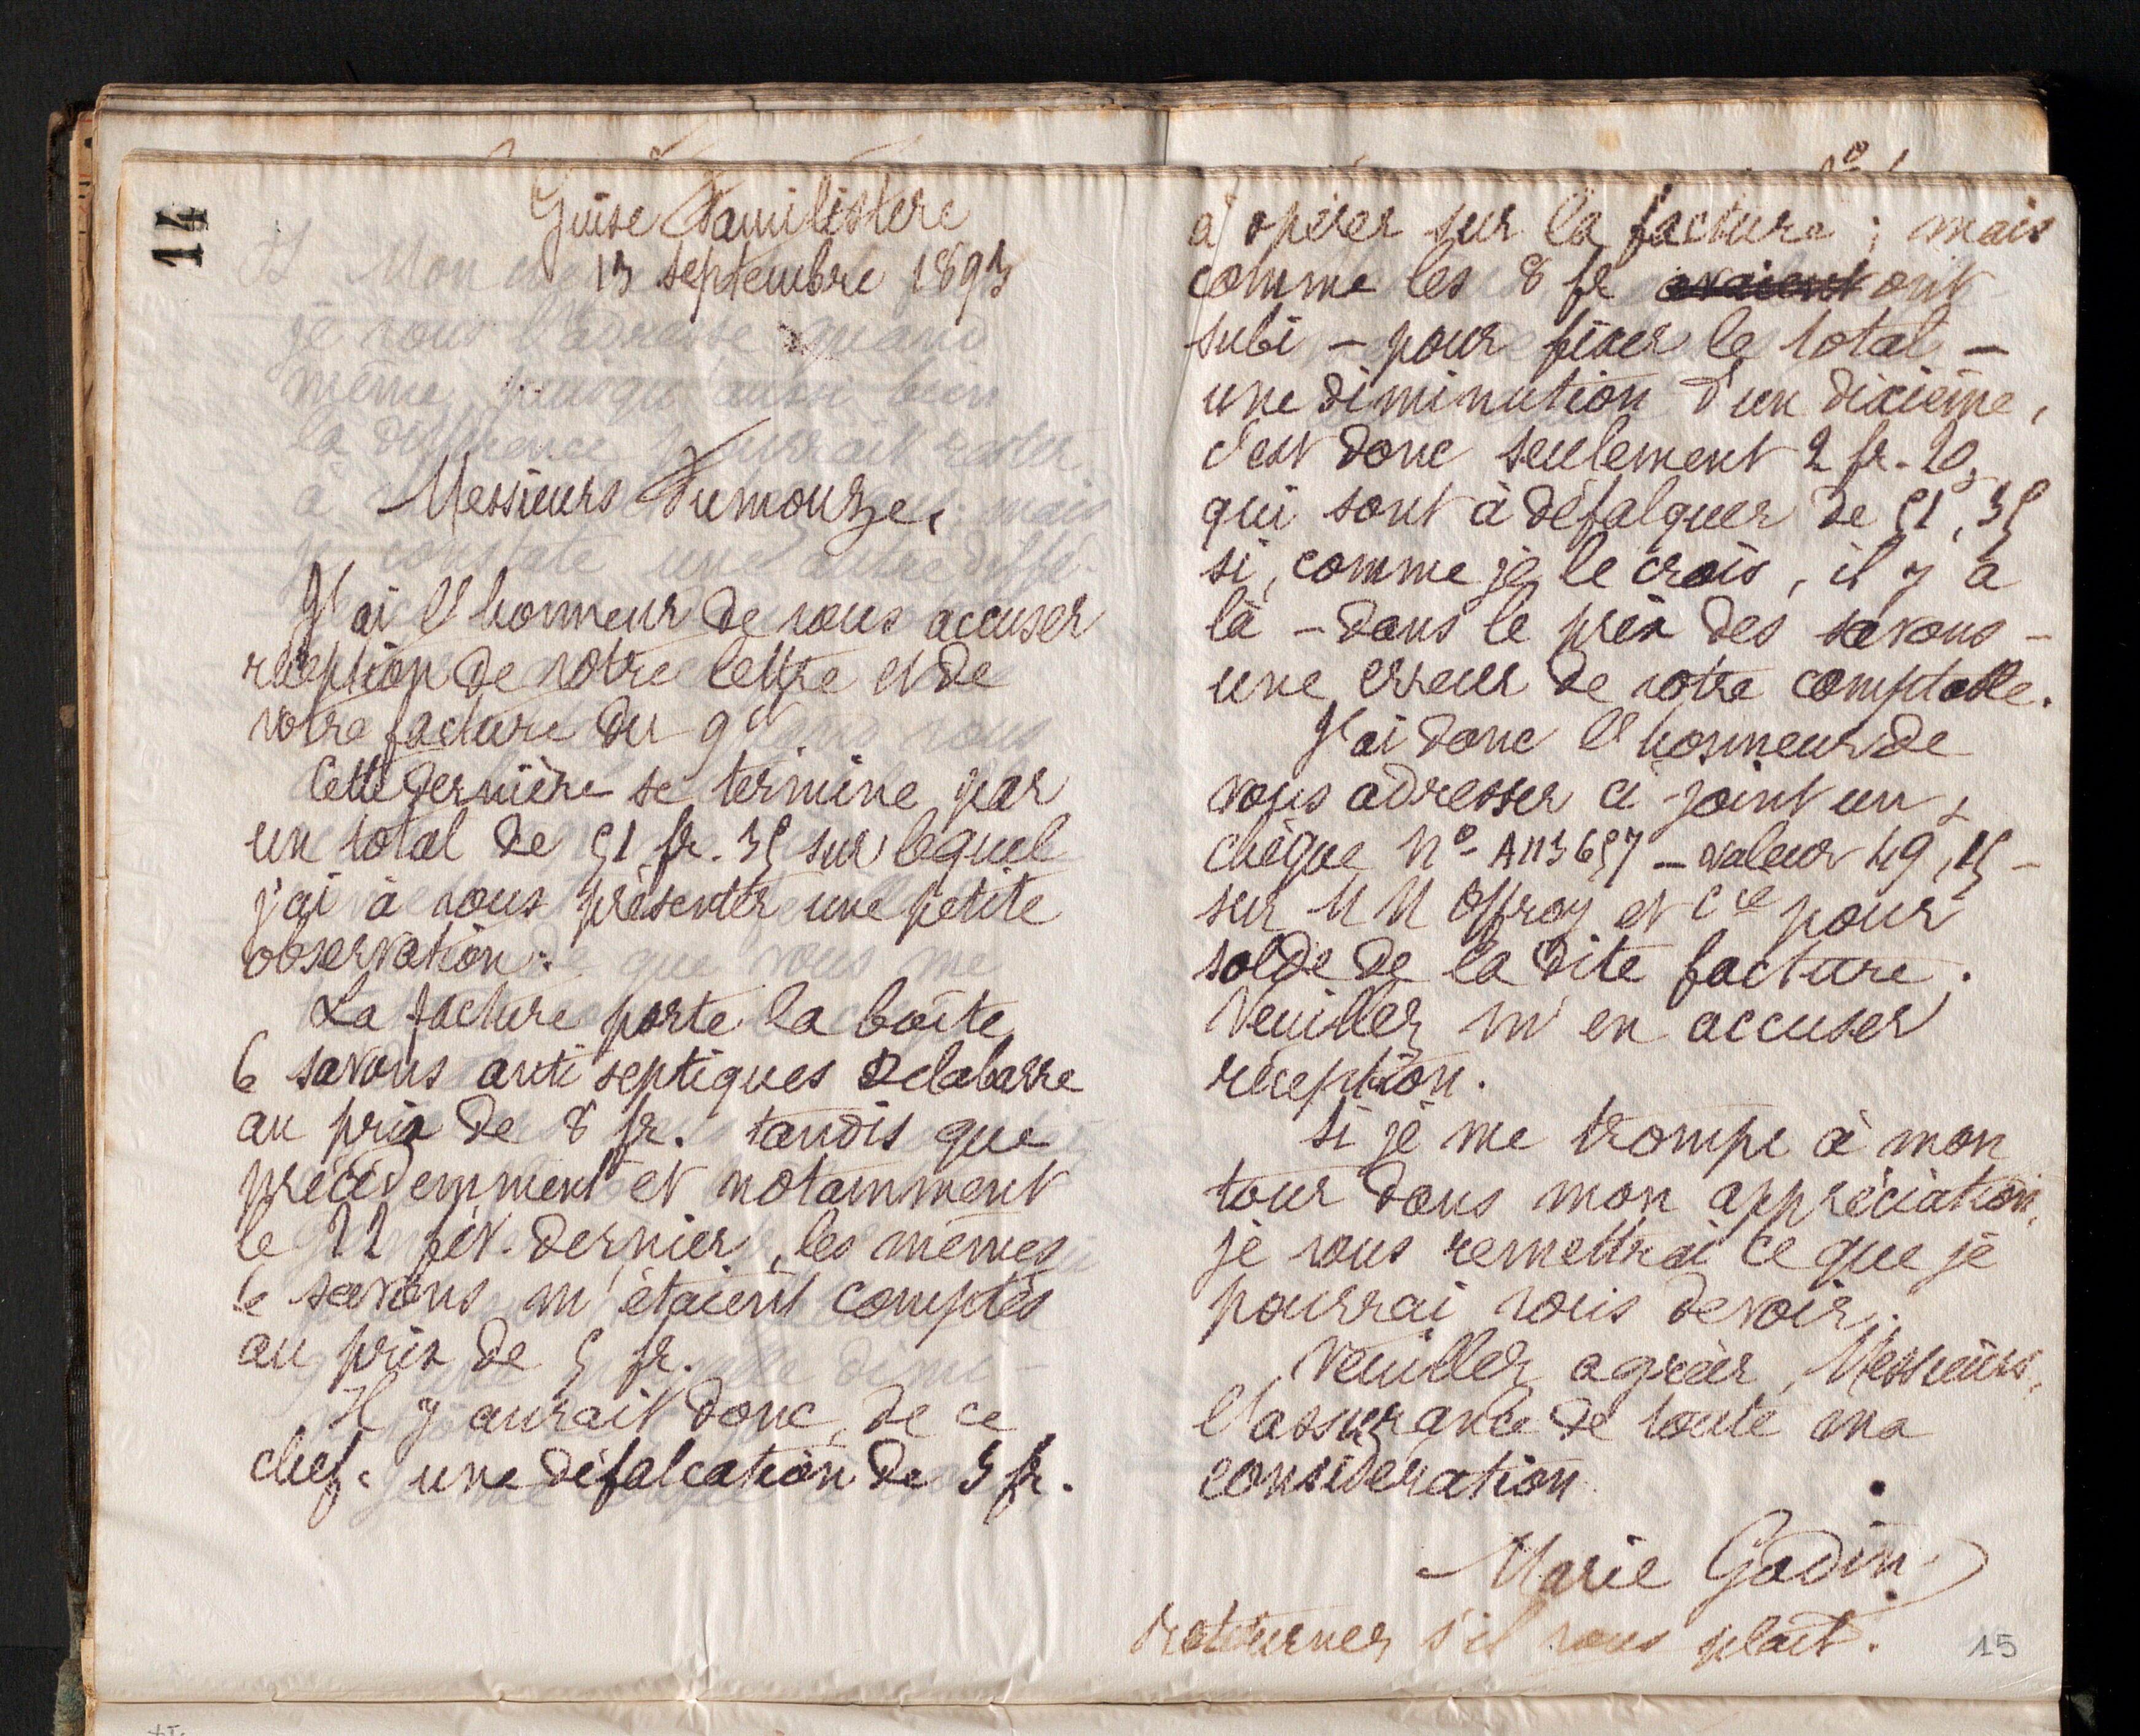 14
Guise Familistère
13 septembre 1893
Messieurs Dumouze,
J'ai l'honneur de vous accuser
réception de votre lettre et de
votre facture du 9 ct
Cette dernière se termine par
un total de 51 fr. 35 sur lequel
j'ai à vous présenter une petite
observation :
La facture porte la boîte
6 savons anti septiques Delabarre
au prix de 8 fr. tandis que
précédemment et notamment
le 22 fév. dernier, les mêmes
6 savons m'étaient comptés
au prix de 5 fr.
Il y aurait donc, de ce
chef, une défalcation de 3 fr.
à opérer sur la facture ; mais
comme les 8 fr avaient ont
subi – pour fixer le total –
une diminution d'un dixième,
c'est donc seulement 2 fr. 20
qui sont à défalquer de 51, 35
si, comme je le crois, il y a
là – dans le prix des savons –
une erreur de votre comptable.
J'ai donc l'honneur de
vous adresser ci-joint un
chèque No A113657 – valeur 49, 15 –
sur MM Offroy et Cie pour
solde de la dite facture.
Veuillez m'en accuser
réception.
Si je me trompe à mon
tour dans mon appréciation,
je vous remettrai ce que je
pourrai vous devoir.
Veuillez agréer, Messieurs,
l'assurance de toute ma
considération
Marie Godin
retourner s'il vous plait.
15